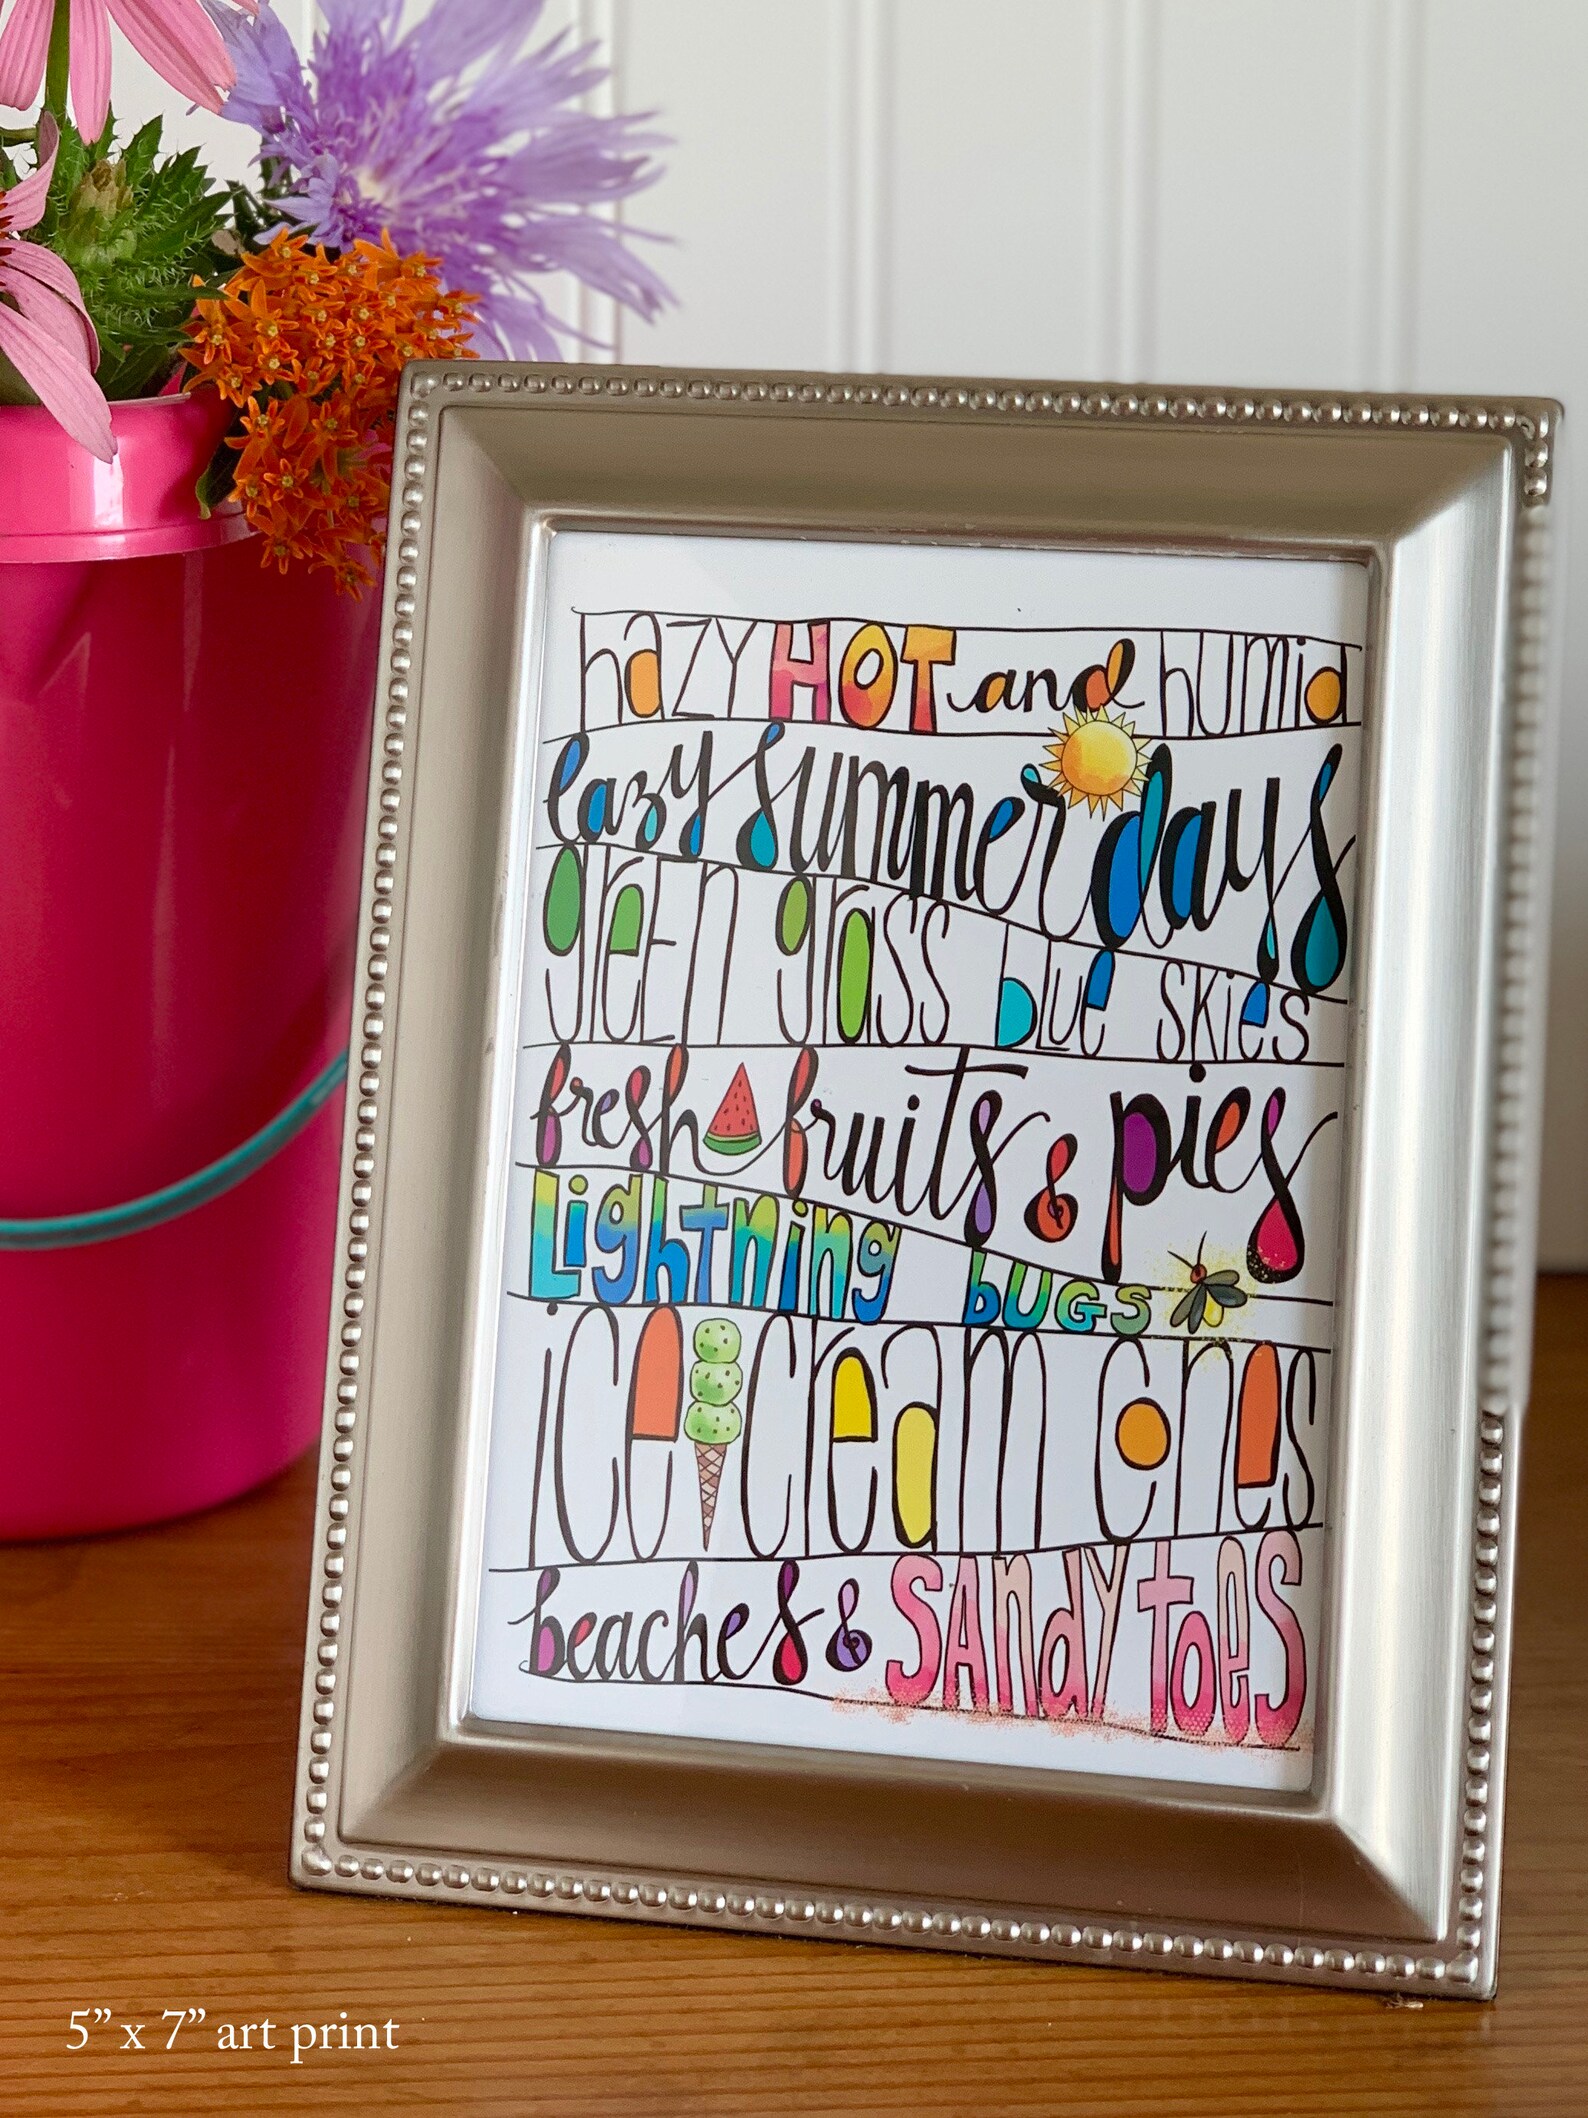 hazy HOT and humid
lazy summer days
green grass blue skies
fresh fruits & pies
Lightning bUGS
ice cream cones
beaches & SANdy toeS
5” x 7” art print